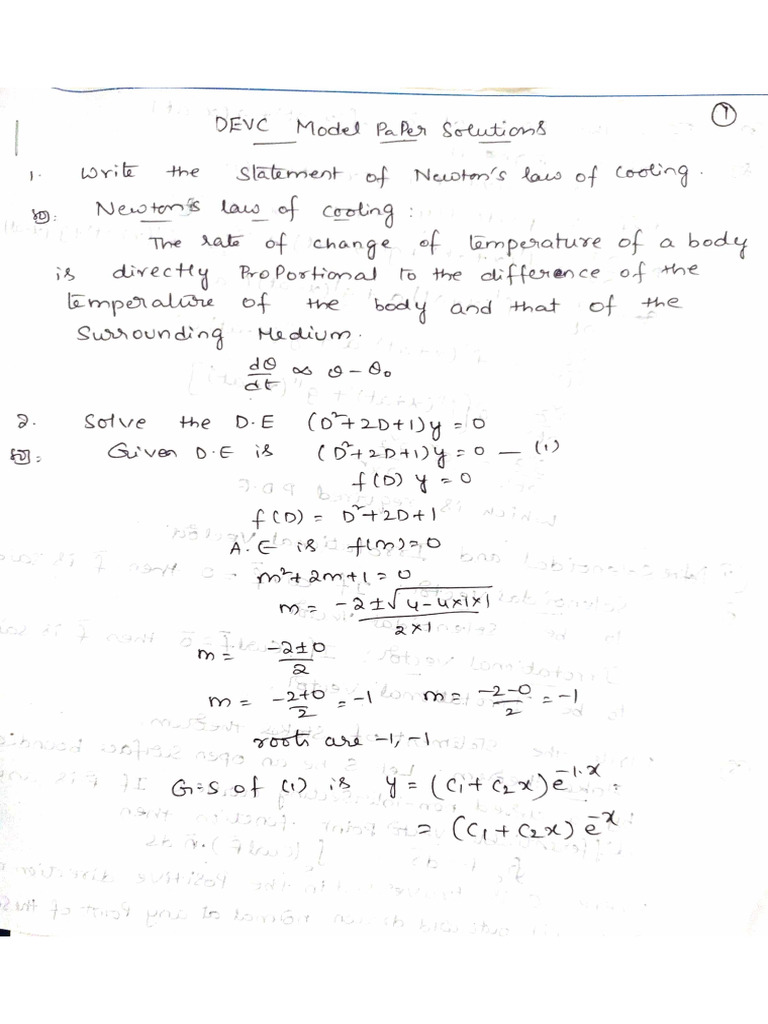 ①
DEVC Model Paper Solutions
1. Write the statement of Newton's law of cooling.
Newton's law of cooling:
The rate of change of temperature of a body
is directly proportional to the difference of the
temperature of the body and that of the
surrounding Medium.
dθ/dt ∝ θ - θ₀
2. Solve the D.E (D²+2D+1)y = 0
Given D.E is (D²+2D+1)y = 0 — (1)
f(D) y = 0
f(D) = D²+2D+1
A.E is f(m)=0
m²+2m+1=0
m = -2±√4-4×1×1 / 2×1
m = -2±0 / 2
m = -2+0 / 2 = -1 m = -2-0 / 2 = -1
roots are -1, -1
G.S of (1) is y = (C₁+C₂x)e^-1.x
= (C₁+C₂x) e^-x